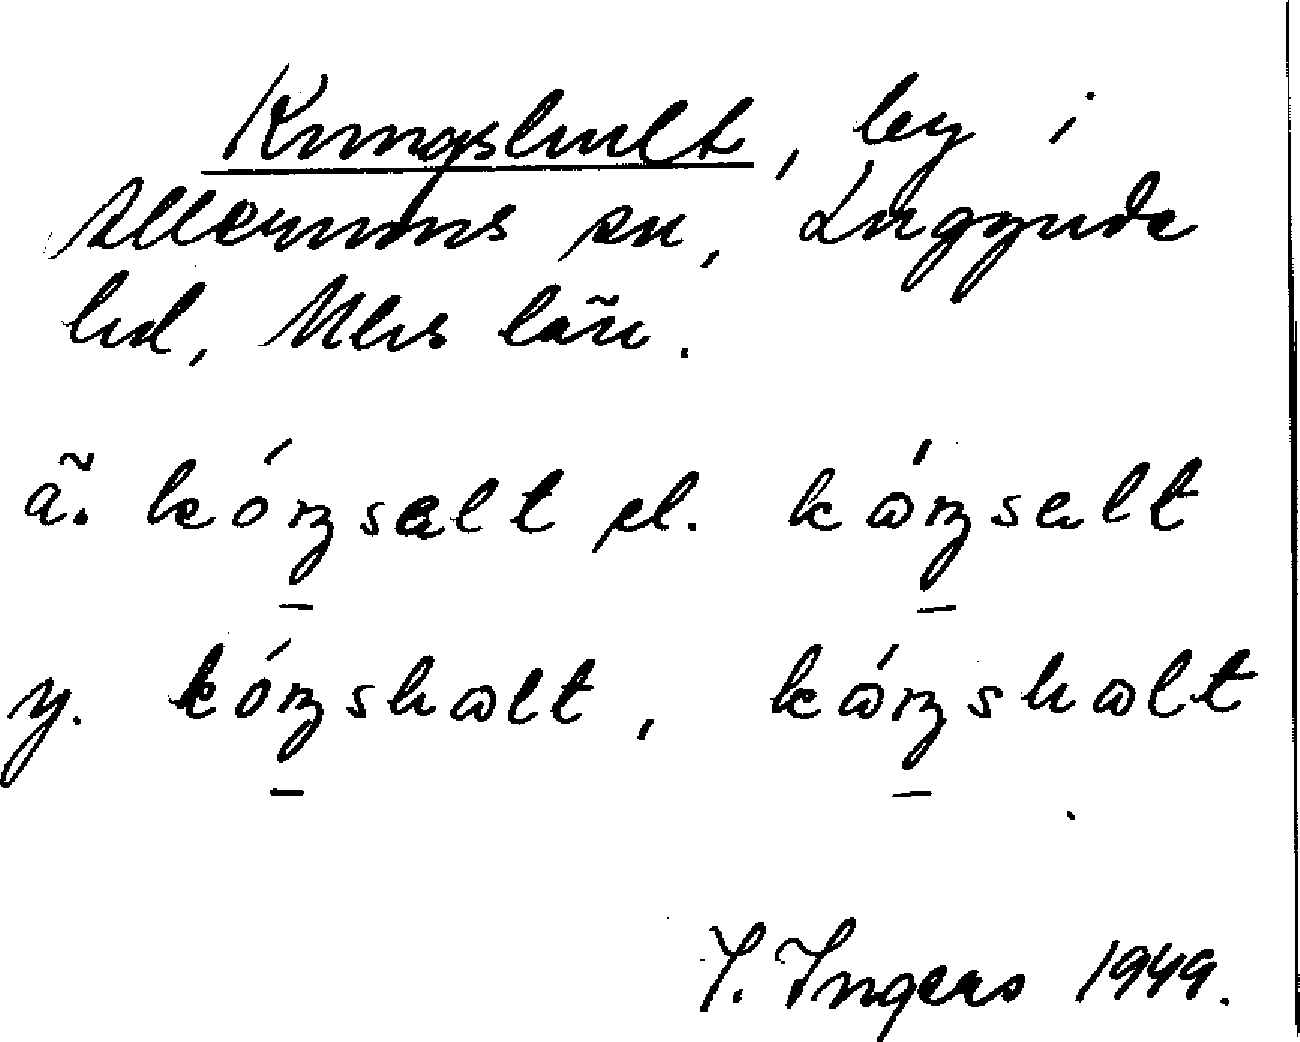 Kungshult, by i
Allerums sn, Luggude
hd, Mlhs län.
ä. kóŋsalt el. kώŋsalt
y. kóŋshωlt, kώŋshωlt
I. Ingers 1949.